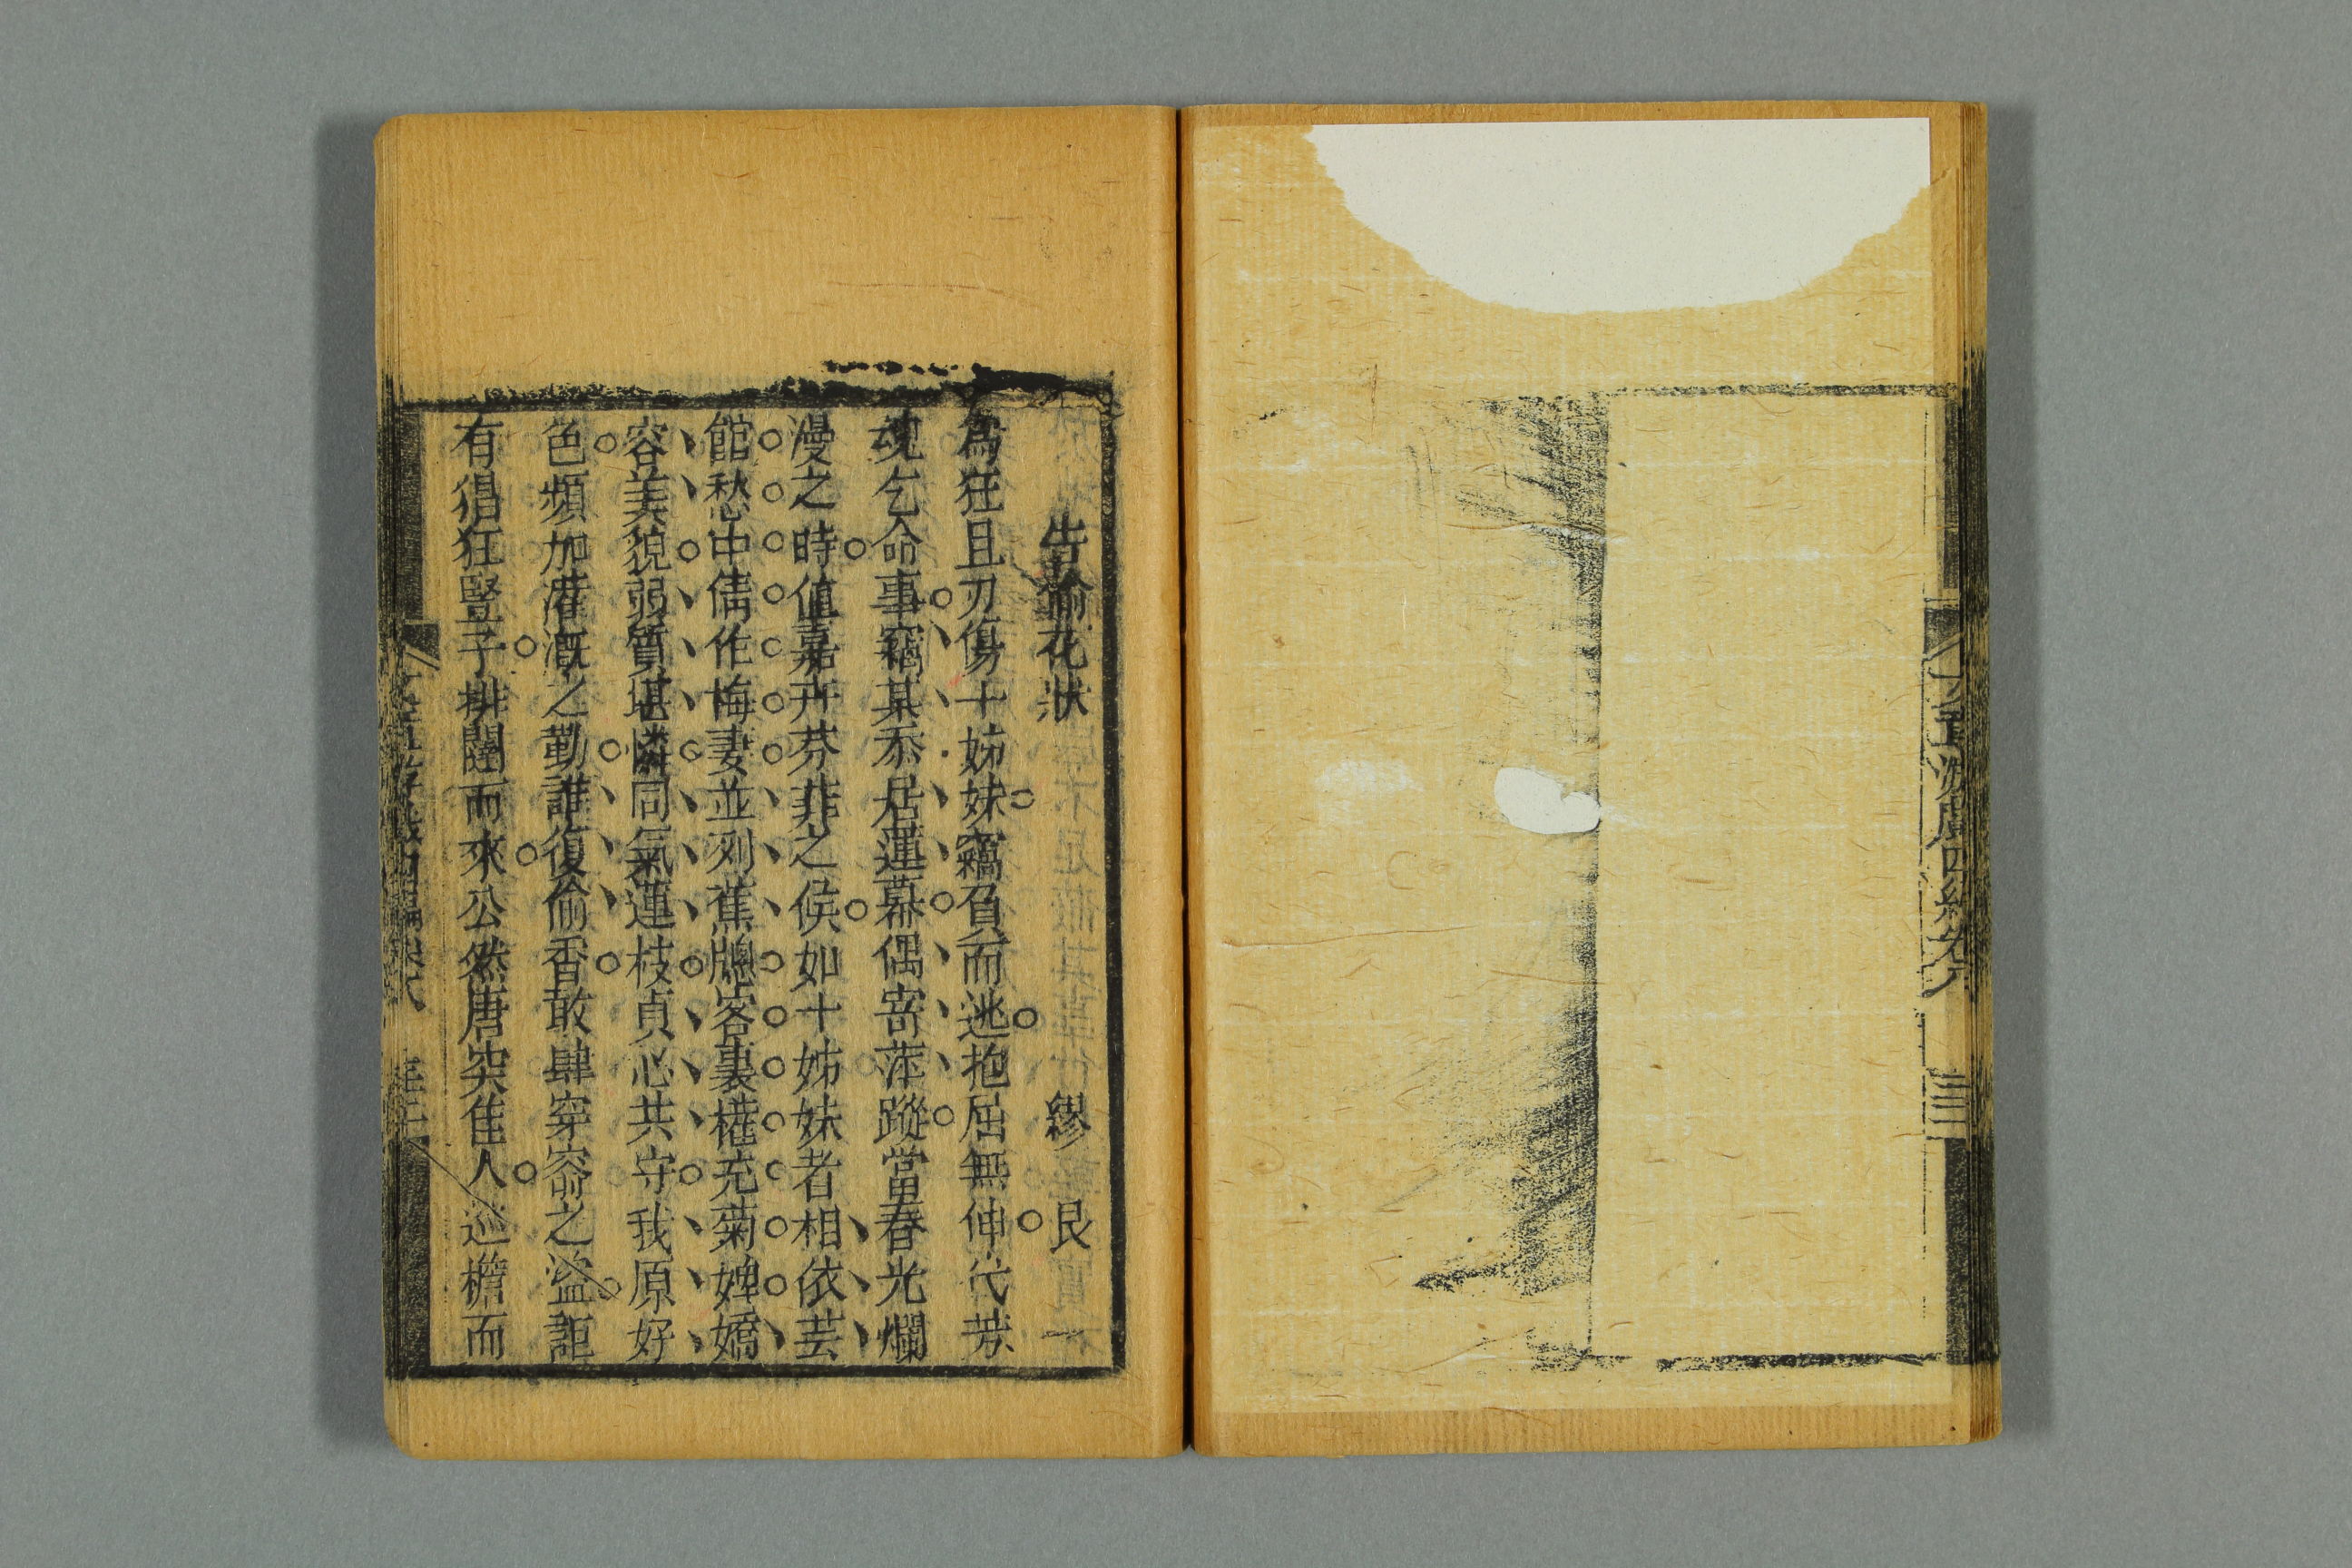 告偷花狀 繆艮
為狂且刃傷十姊妹竊負而逃抱屈無伸代芳
魂乞命事竊某忝居蓮幕偶寄萍蹤當春光爛
漫之時值嘉卉芬菲之候如十姊妹者相依芸
館愁中倩作梅妻並列蕉牕客裏權充菊婢嬌
容美貌弱質堪憐同氣蓮枝貞心共守我原好
色頻加灌溉之勤誰復偷香敢肆穿窬之盜詎
有倡狂豎子排闥而來公然唐突隹人巡檐而